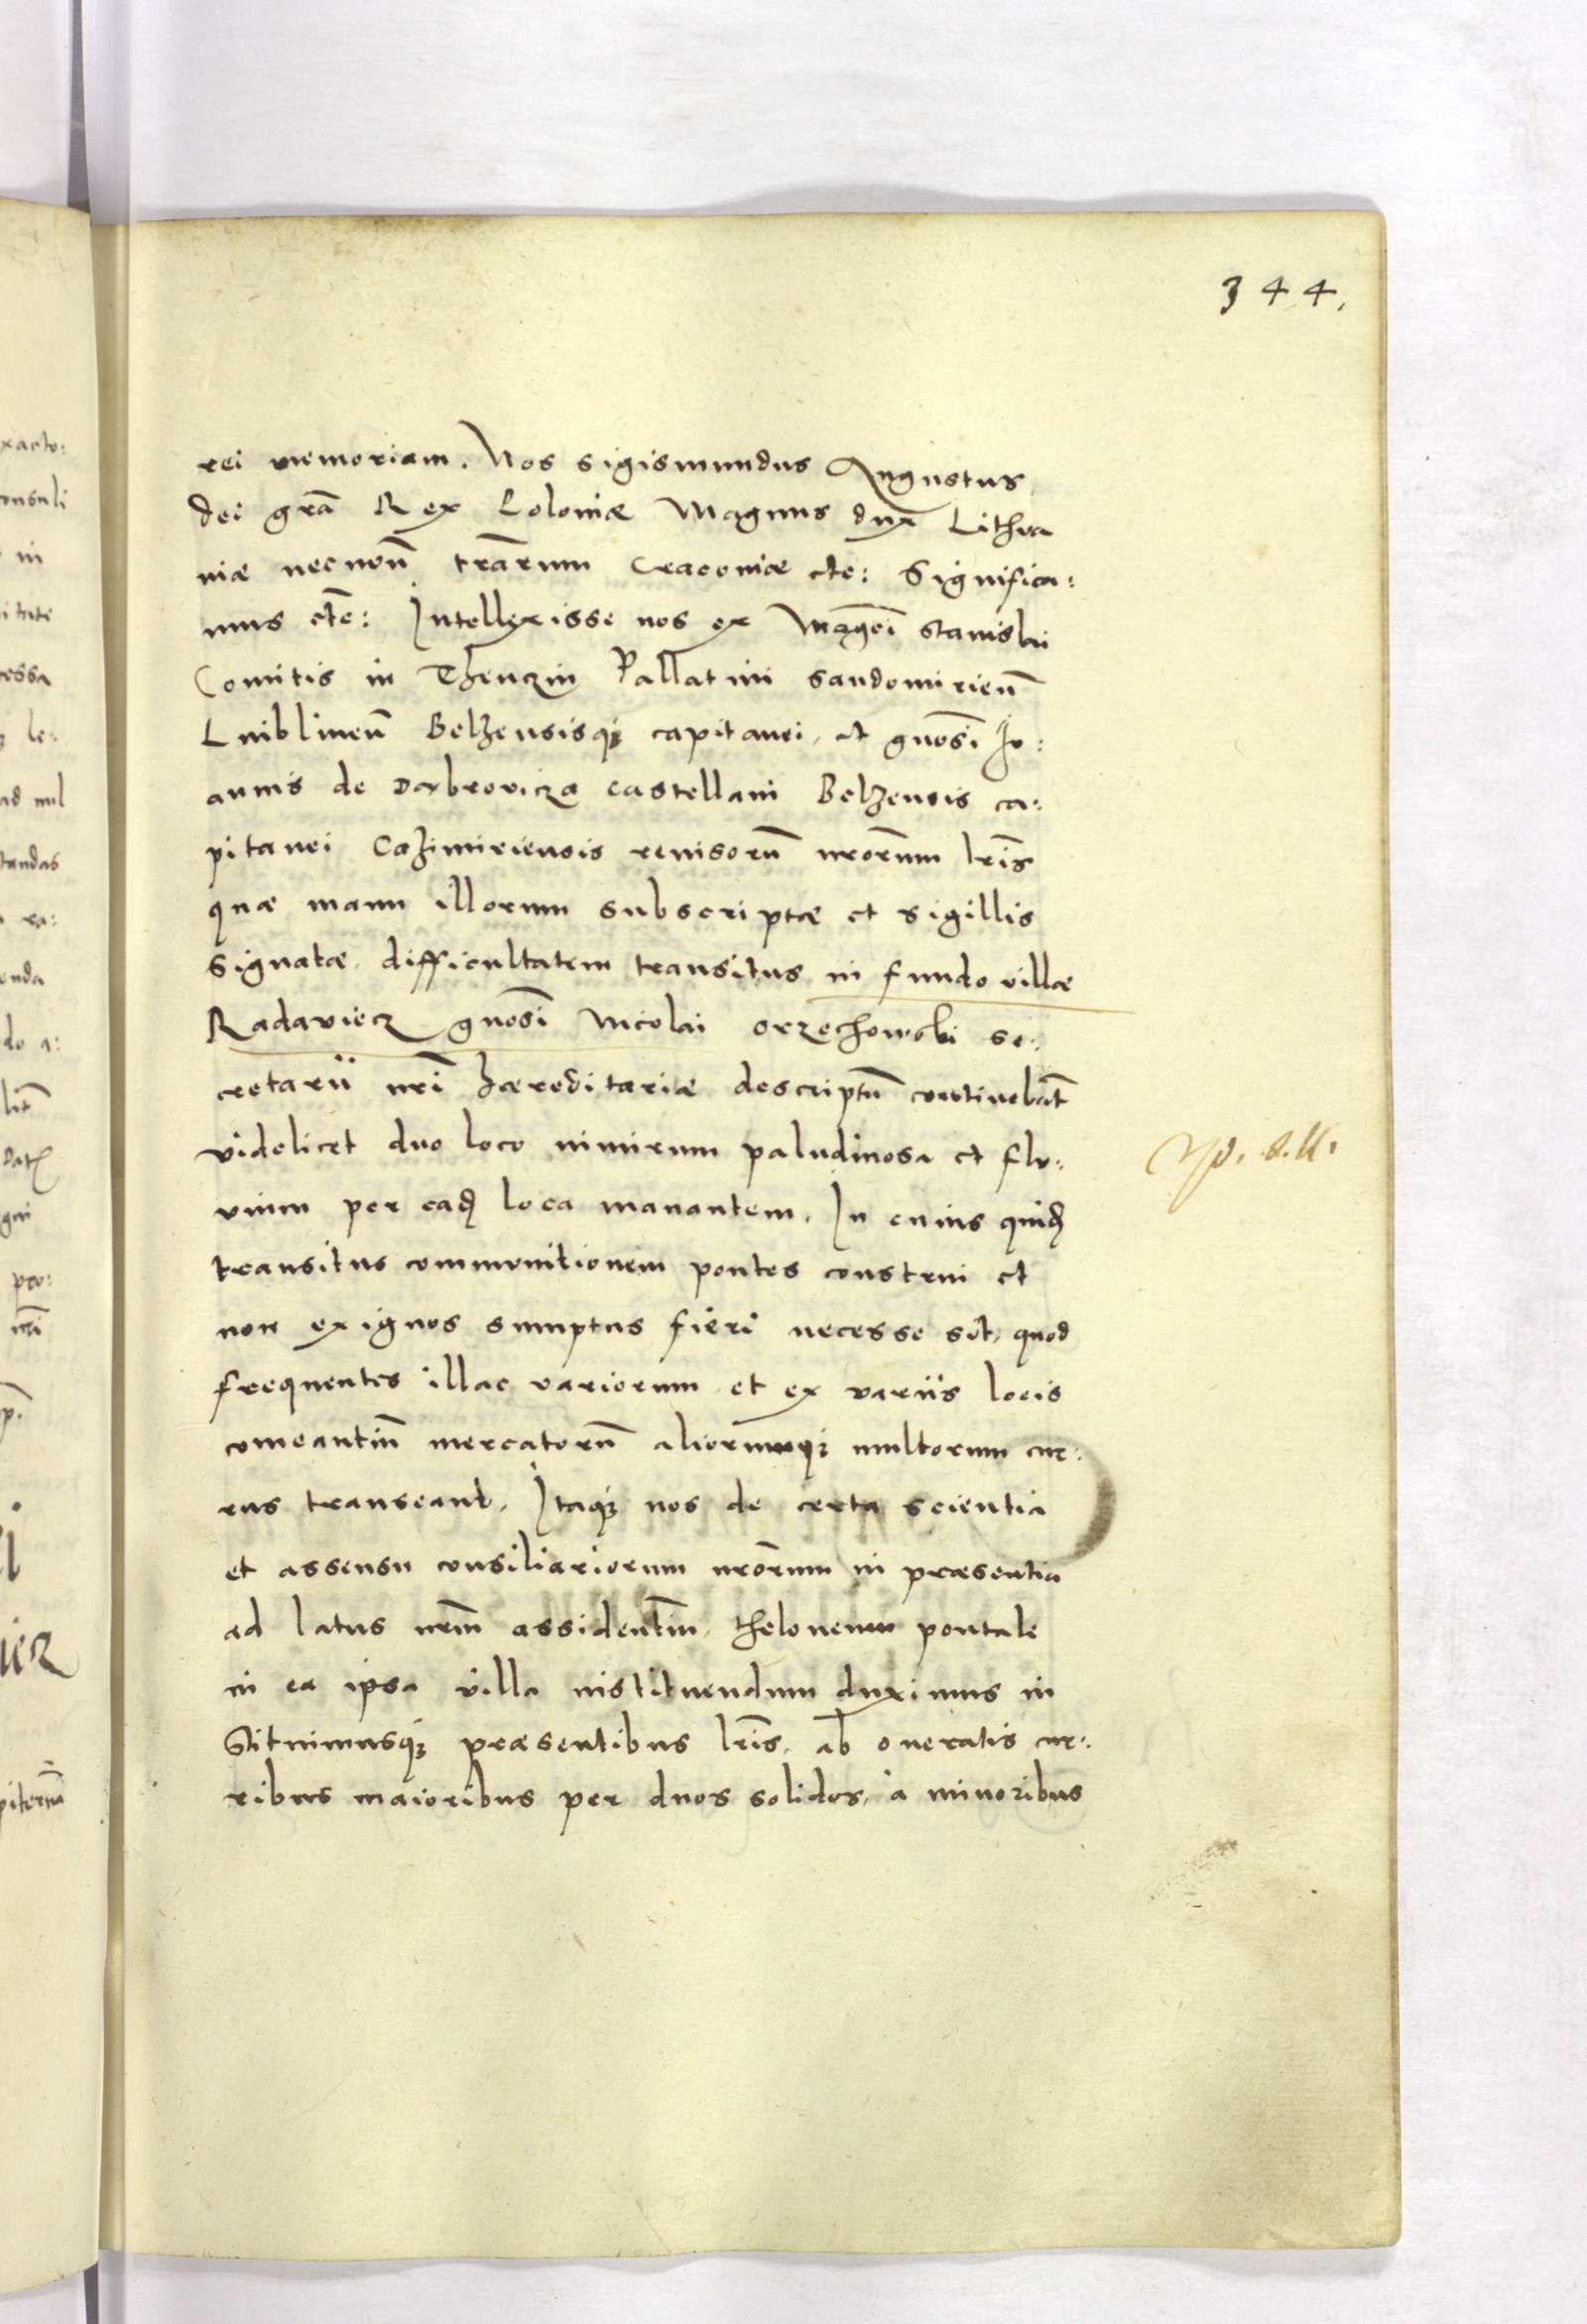 344.
rei memoriam. Nos Sigismundus Augustus
dei grã Rex Poloniæ Magnus dux Lithva
niæ necnoñ trãrum Cracoviæ etc: Significa:
mus etc: Intellexisse nos ex Mageĩ Stanislai
Comitis in Thenczin Pallatini Sandomirieñ
Lublineñ Belzensisq; capitanei, et gnosi Jo:
annis de Dabrovicza castellani Belzensis ca:
pitanei Cazimiriensis revisorũ nrõrum lrĩs
quæ manu illorum subscriptæ et sigillis
signatæ, difficultatem transitus in fundo villæ
Radaviecz gnosi Nicolai Orzechowski se:
cretarii nrĩ hæreditariæ descriptũ continebãt
videlicet duo loco nimirum paludinosa et flu:
vium per eadẽ loca manantem. In cuius quidẽ
transitus communitionem pontes construi et
non exiguos sumptus fieri necesse sit, quod
frequentes illac variorum et ex variis locis
comeantiũ mercatorũ aliorumq; multorum cur:
rus transeant. Itaq; nos de certa scientia
et assensu consiliariorum nrõrum in præsentia
ad latus nrm̃ assidentĩm, theloneum pontale
in ea ipsa villa instituendum duximus in
stituimusq; præsentibus lrĩs, ab oneratis cur:
ribus maioribus per duos solidos, a minoribus